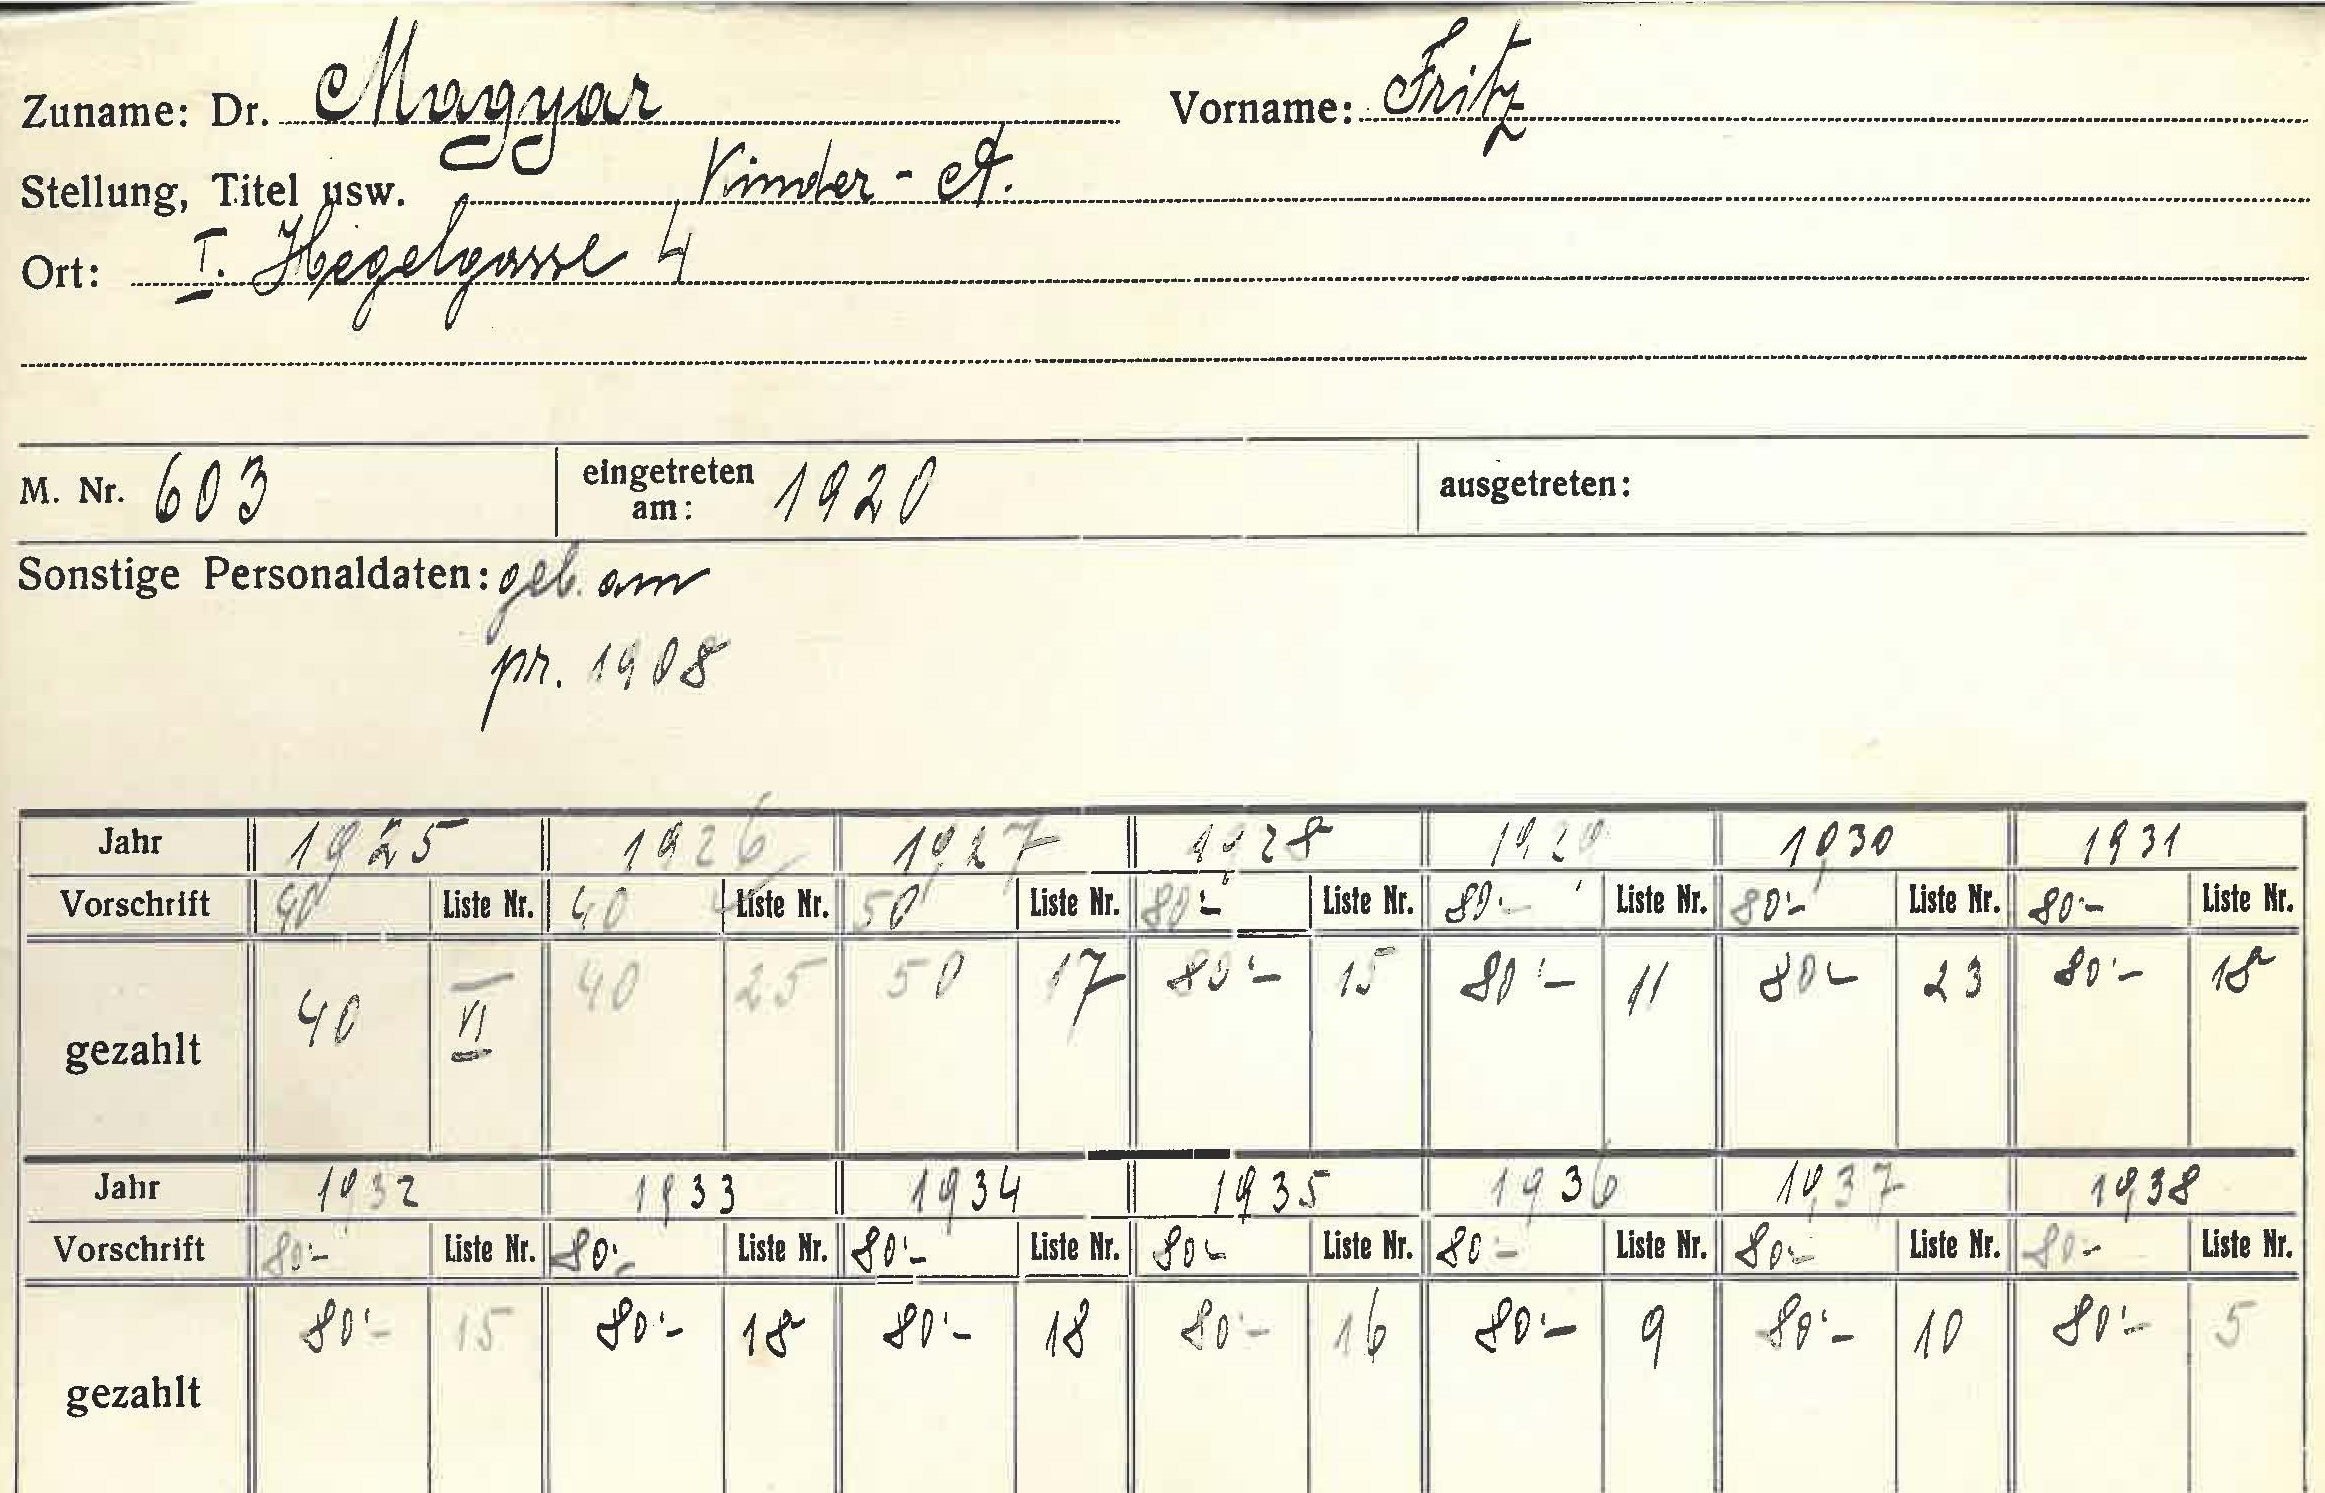 Zuname: Dr. Magyar Vorname: Fritz
Stellung, Titel usw. Kinder-A.
Ort: I. Hegelgasse 4
M. Nr. 603 eingetreten am: 1920 ausgetreten:
Sonstige Personaldaten: geb. am
pr. 1908
Jahr 1925 1926 1927 1928 1929 1930 1931
Vorschrift 40 Liste Nr. 40 Liste Nr. 50 Liste Nr. 80'- Liste Nr. 80'- Liste Nr. 80'- Liste Nr. 80'- Liste Nr.
gezahlt 40 VI 40 25 50 17 80'- 15 80'- 11 80'- 23 80'- 18
Jahr 1932 1933 1934 1935 1936 1937 1938
Vorschrift 80'- Liste Nr. 80'- Liste Nr. 80'- Liste Nr. 80'- Liste Nr. 80'- Liste Nr. 80'- Liste Nr. 80'- Liste Nr.
gezahlt 80'- 15 80'- 18 80'- 18 80'- 16 80'- 9 80'- 10 80'- 5